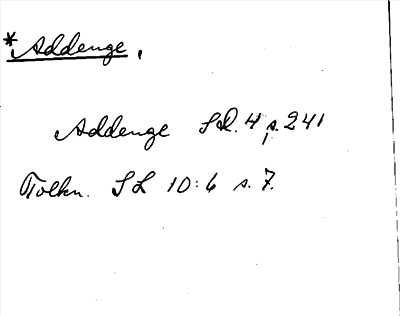 *Addenge,
Addenge SD. 4, s. 241
Tolkn. SL 10:6 s. 7.